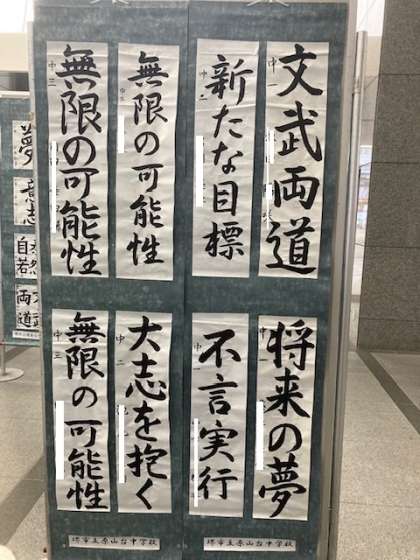 文武両道
中一
新たな目標
中二
無限の可能性
中三
無限の可能性
中三
将来の夢
中一
不言実行
中一
大志を抱く
中二
無限の可能性
中三
堺市立原山台中学校
堺市立原山台中学校
夢
意志
自若
両道